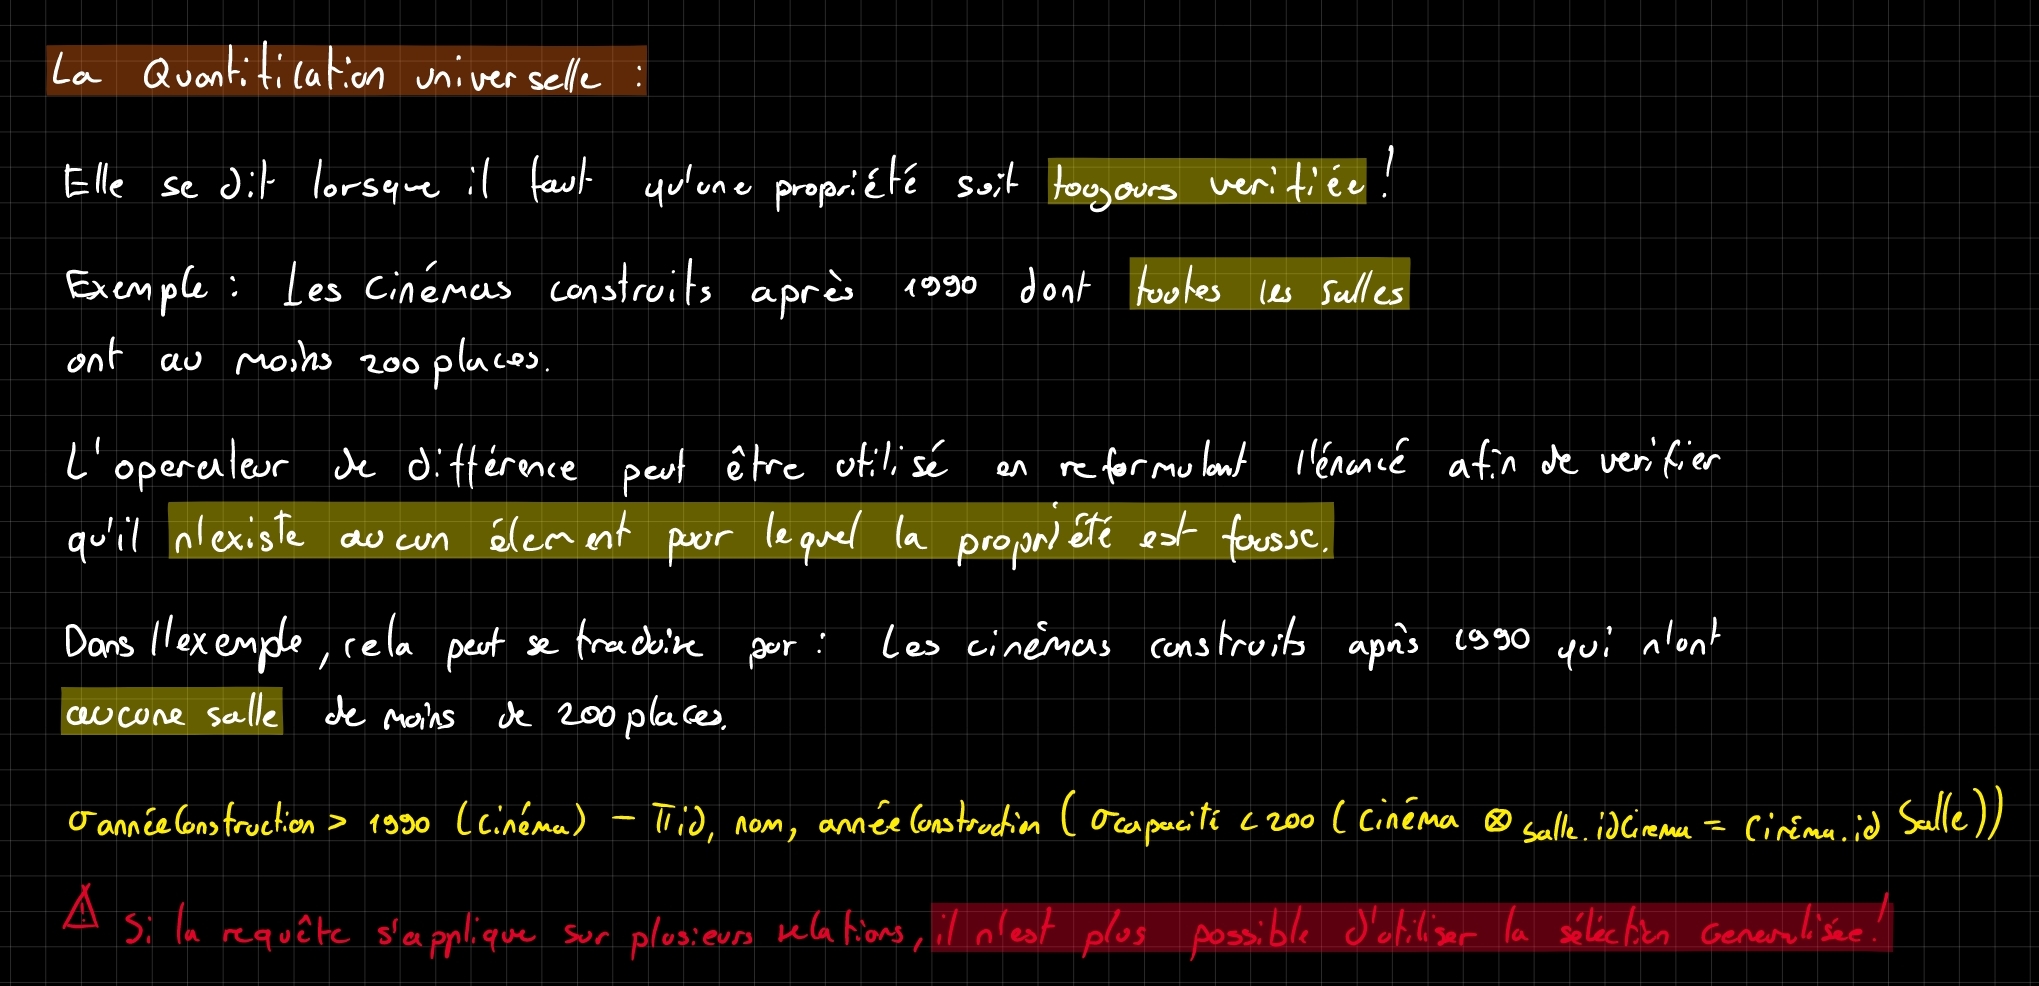 La Quantification universelle :
Elle se dit lorsque il faut qu'une propriété soit toujours verifiée !
Exemple : Les Cinémas construits après 1990 dont toutes les salles
ont au moins 200 places.
L'operateur de différence peut être utilisé en reformulant l'énoncé afin de verifier
qu'il n'existe aucun élement pour lequel la propriété est fausse.
Dans l'exemple, cela peut se traduire par : Les cinémas construits après 1990 qui n'ont
aucune salle de moins de 200 places.
σ annéeConstruction > 1990 (Cinéma) - π id, nom, annéeConstruction (σ capacité < 200 (Cinéma ⊗ salle.idCinema = Cinéma.id Salle))
⚠ Si la requête s'applique sur plusieurs relations, il n'est plus possible d'utiliser la séléction Generalisée !